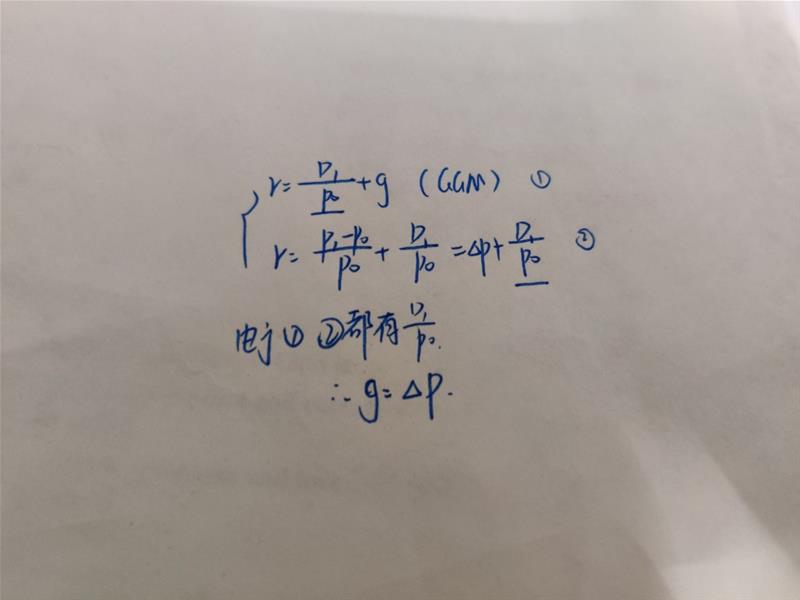 r = D₁/P₀ + g (GGM) ①
r = P₁-P₀/P₀ + D₁/P₀ = ΔP + D₁/P₀ ②
由于① ②都有 D₁/P₀.
∴ g = ΔP.